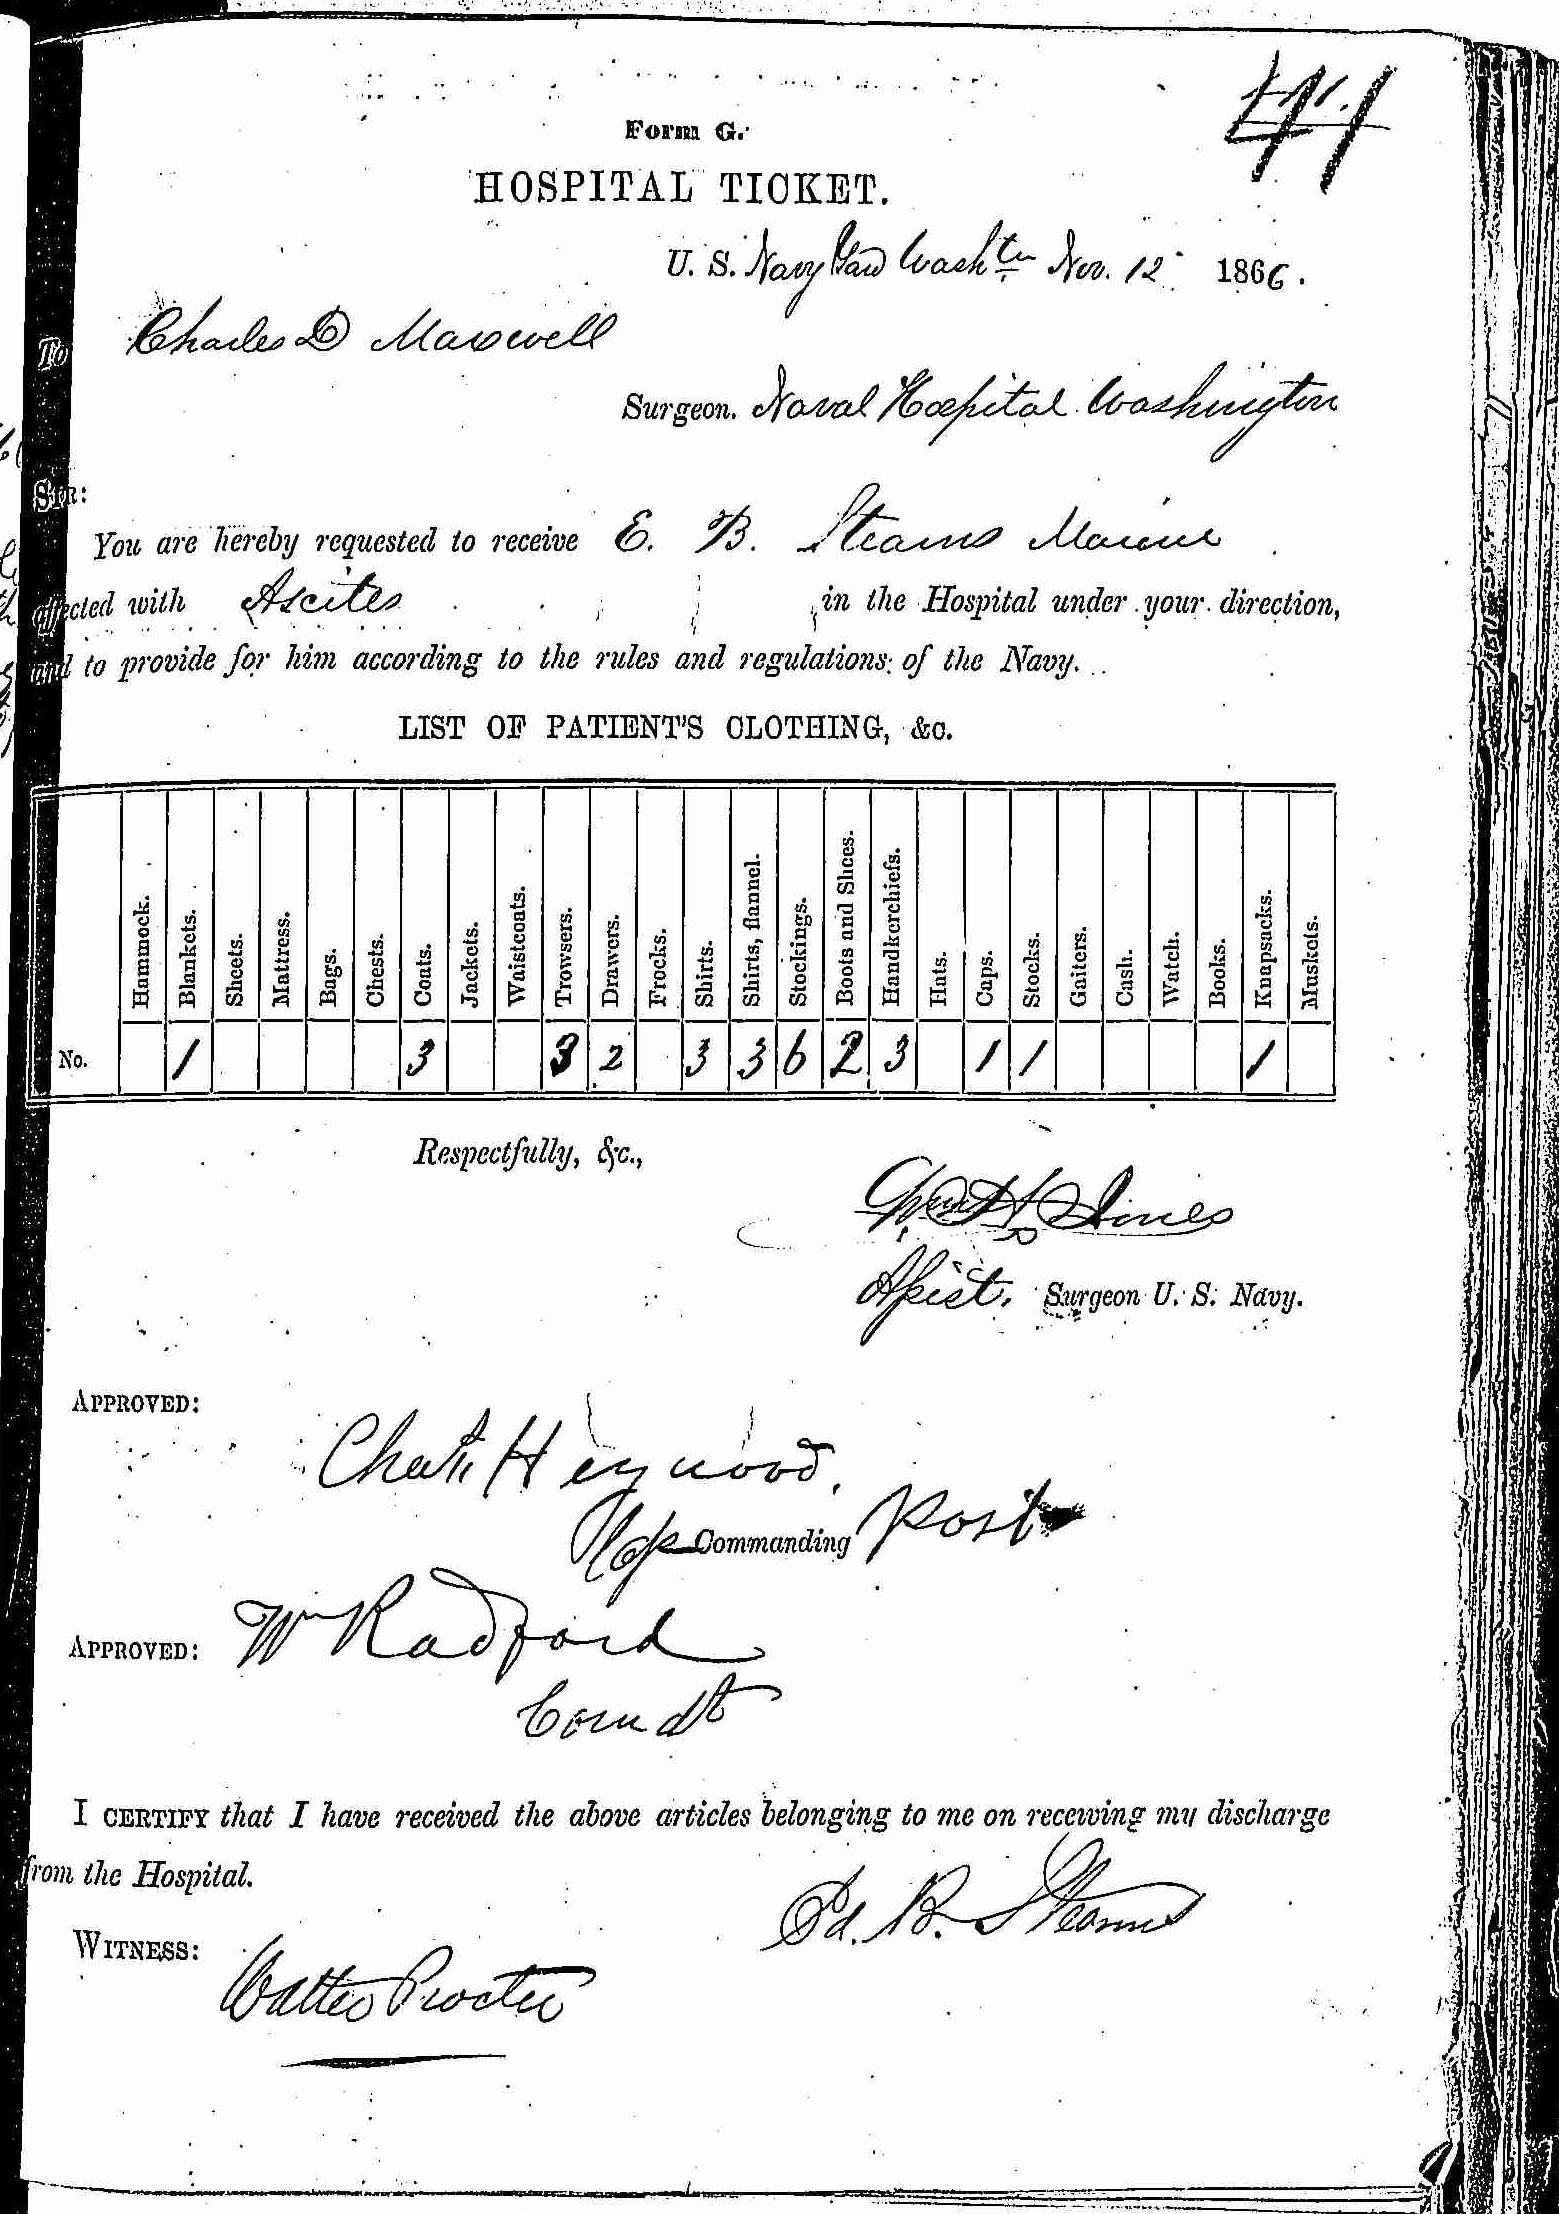 41
Form G.
HOSPITAL TICKET.
U. S. Navy Yard Washtn Nov. 12 1866.
To Charles D Maxwell
Surgeon. Naval Hospital Washington
SIR:
You are hereby requested to receive E. B. Stearns Marine
affected with Ascites in the Hospital under your direction,
and to provide for him according to the rules and regulations of the Navy.
LIST OF PATIENT'S CLOTHING, &c.
Hammock. Blankets. Sheets. Mattress. Bags. Chests. Coats. Jackets. Waistcoats. Trowsers. Drawers. Frocks. Shirts. Shirts, flannel. Stockings. Boots and Shoes. Handkerchiefs. Hats. Caps. Stocks. Gaiters. Cash. Watch. Books. Knapsacks. Muskets.
No. 1 3 3 2 3 3 6 2 3 1 1 1
Respectfully, &c.,
Jones
Asist. Surgeon U. S. Navy.
APPROVED:
Chas Heywood.
Commanding Post
APPROVED: Wm Radford
Comdt
I CERTIFY that I have received the above articles belonging to me on receiving my discharge
from the Hospital.
Ed. B. Stearns
WITNESS:
Walter Procter